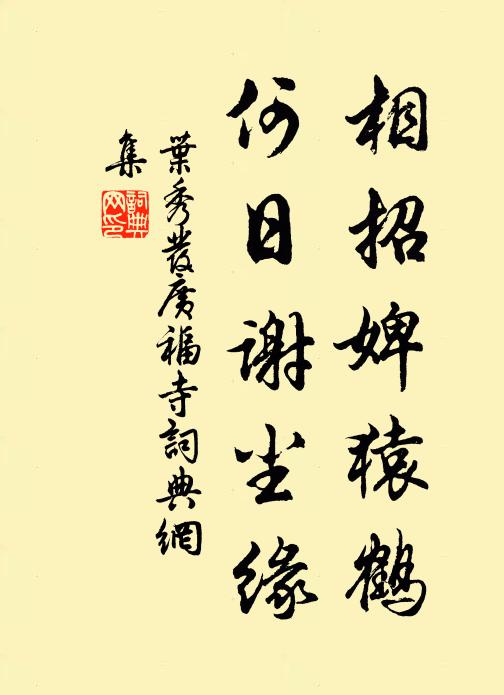 相招婢猿鶴
何日謝尘缘
葉秀發廣福寺詞典網
集
詞典
网印